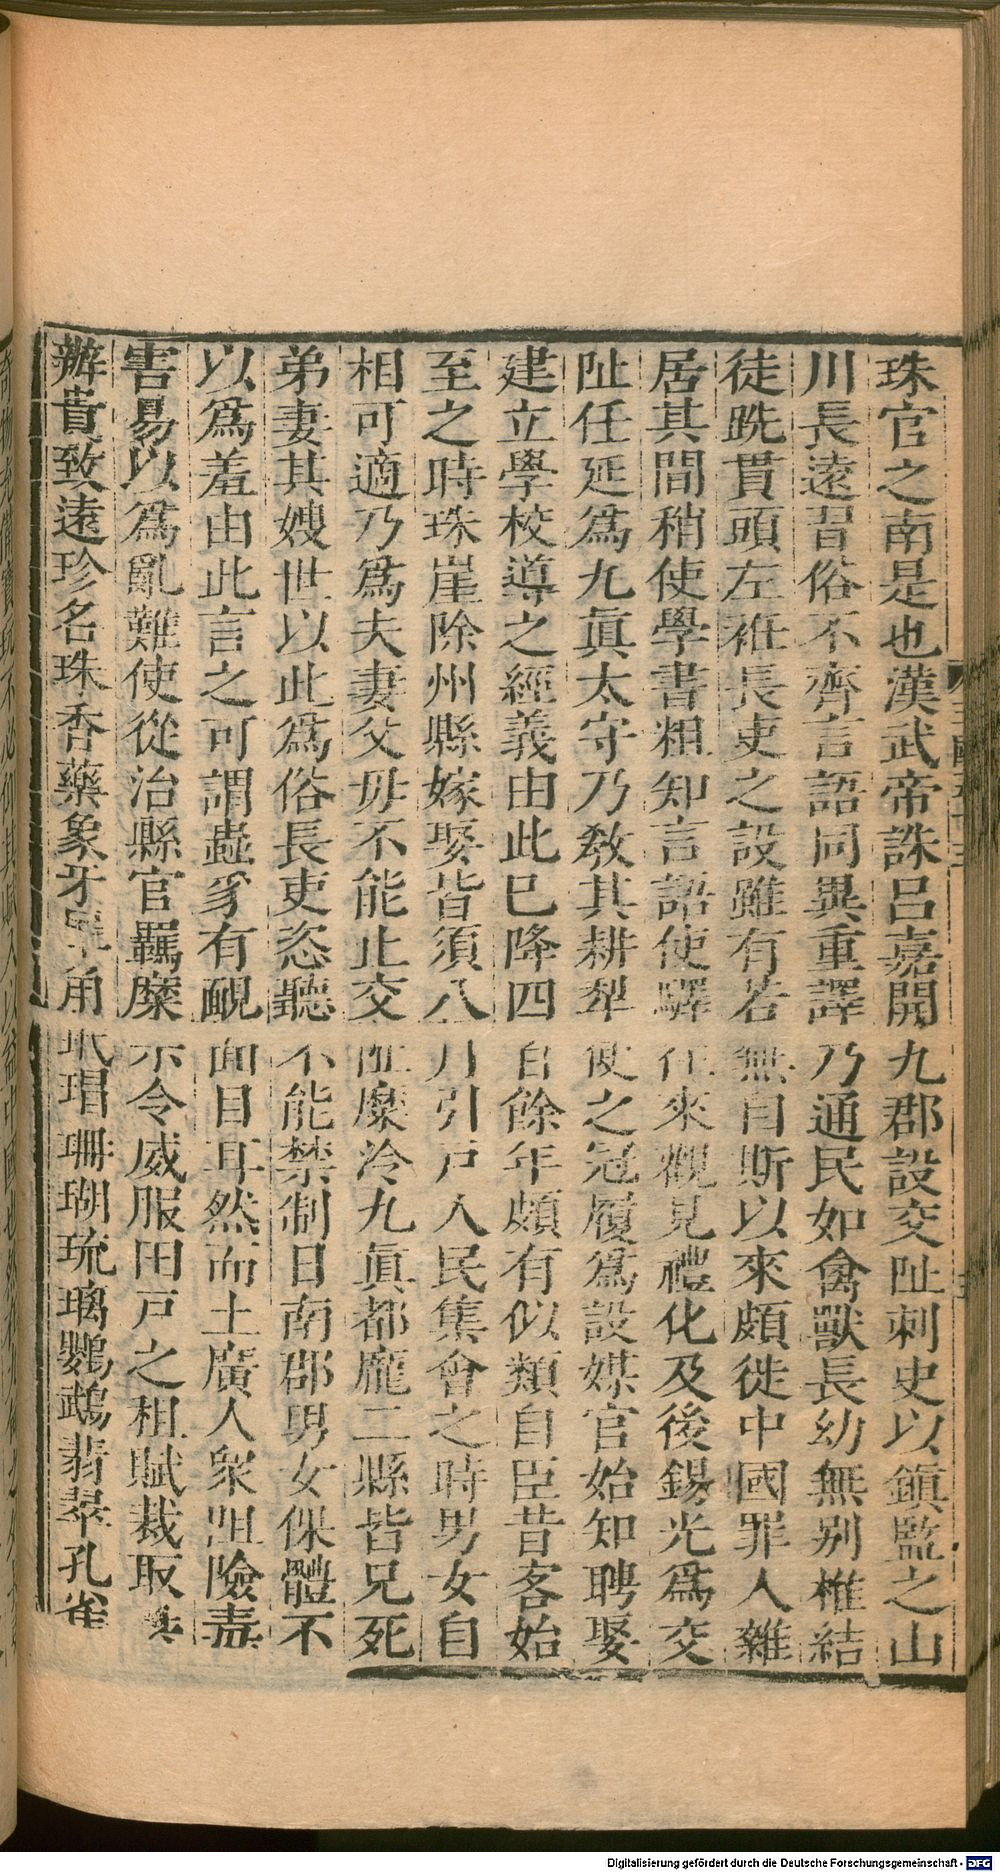 珠官之南是也漢武帝誅呂嘉開九郡設交阯刺史以鎮監之山
川長遠習俗不齊言語同異重譯乃通民如禽獸長幼無别椎結
徒跣貫頭左袵長吏之設雖有若無自斯以來頗徙中國罪人雜
居其間稍使學書粗知言語使驛往來觀見禮化及後錫光爲交
阯任延爲九眞太守乃敎其耕犁使之冠履爲設媒官始知聘娶
建立學校導之經義由此已降四百餘年頗有似類自臣昔客始
至之時珠崖除州縣嫁娶皆須八月引戸人民集會之時男女自
相可適乃爲夫妻父母不能止交阯麋泠九眞都龎二縣皆兄死
弟妻其嫂世以此爲俗長吏恣聽不能禁制日南郡男女倮體不
以爲羞由此言之可謂蟲豸有靦面目耳然而土廣人衆阻險毒
害易以爲亂難使從治縣官羈縻示令威服田戸之租賦裁取供
辦貴致遠珍名珠香藥象牙犀角玳瑁珊瑚琉璃鸚鵡翡翠孔雀
Digitalisierung gefördert durch die Deutsche Forschungsgemeinschaft - DFG